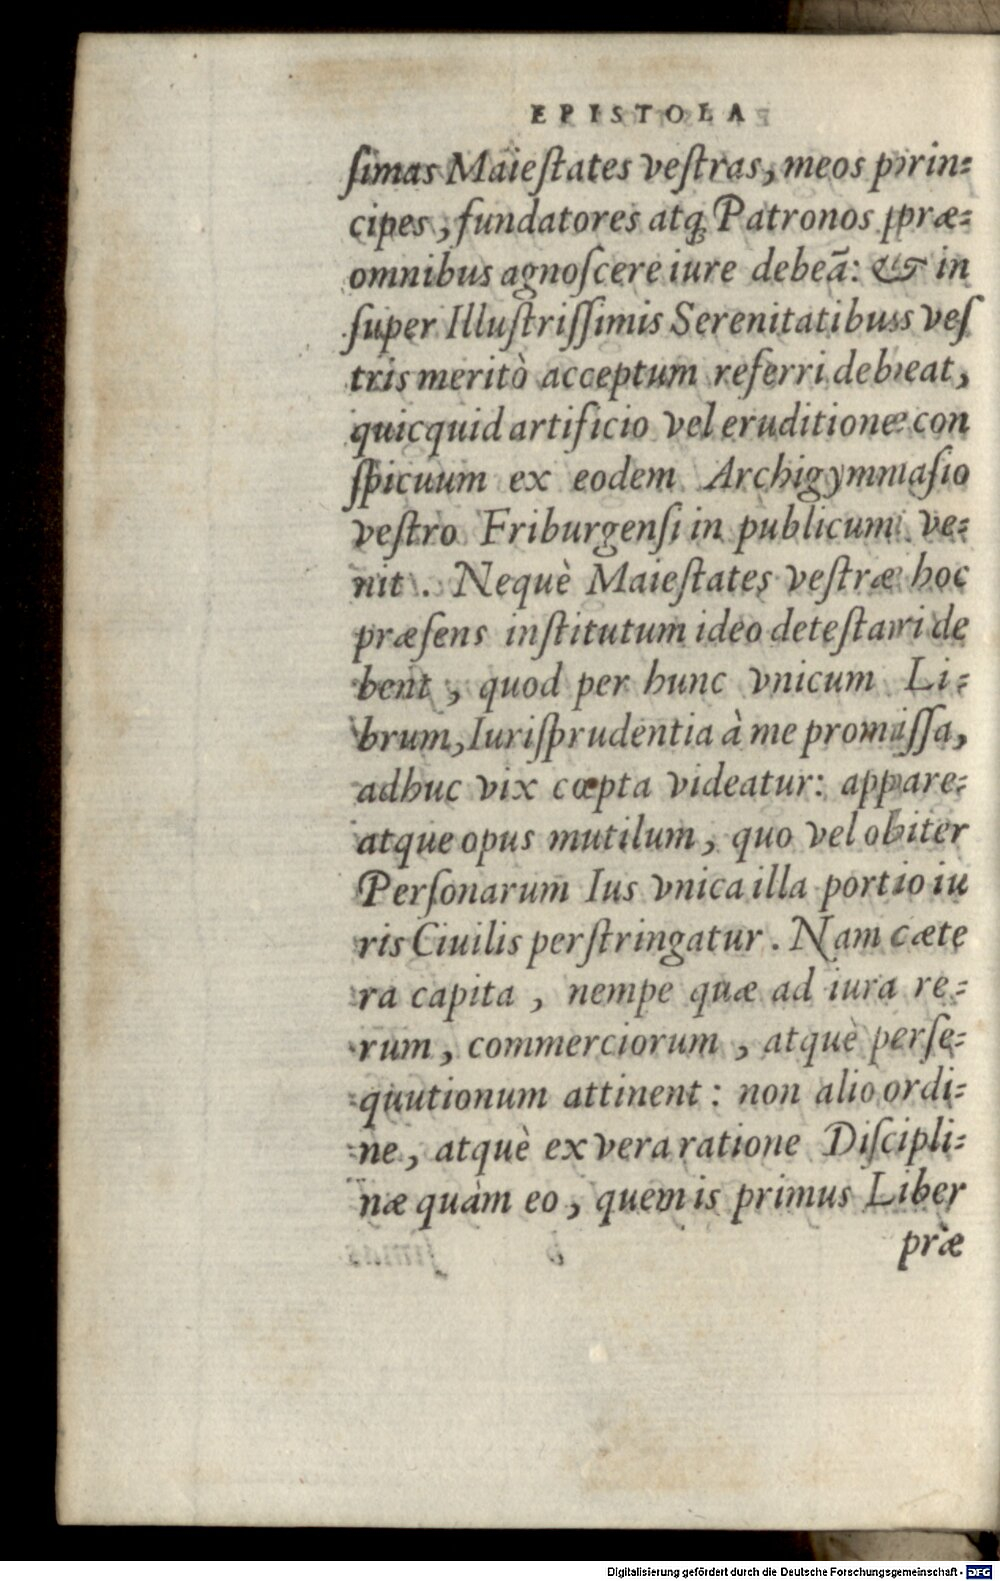 EPISTOLA
ſimas Maieſtates veſtras, meos prin⸗
cipes, fundatores atq; Patronos præ⸗
omnibus agnoſcere iure debeā: & in
ſuper Illuſtriſſimis Serenitatibus veſ
tris meritò acceptum referri debeat,
quicquid artificio vel eruditione con
ſpicuum ex eodem Archigymnaſio
veſtro Friburgenſi in publicum ve⸗
nit. Nequè Maieſtates veſtræ hoc
præſens inſtitutum ideo deteſtari de
bent, quod per hunc vnicum Li⸗
brum, Iuriſprudentia à me promiſſa,
adhuc vix cœpta videatur: appare⸗
atque opus mutilum, quo vel obiter
Perſonarum Ius vnica illa portio iu
ris Ciuilis perſtringatur. Nam cæte
ra capita, nempe quæ ad iura re⸗
rum, commerciorum, atquè perſe⸗
quutionum attinent: non alio ordi⸗
ne, atquè ex vera ratione Diſcipli⸗
næ quàm eo, quem is primus Liber
præ
Digitalisierung gefördert durch die Deutsche Forschungsgemeinschaft - DFG